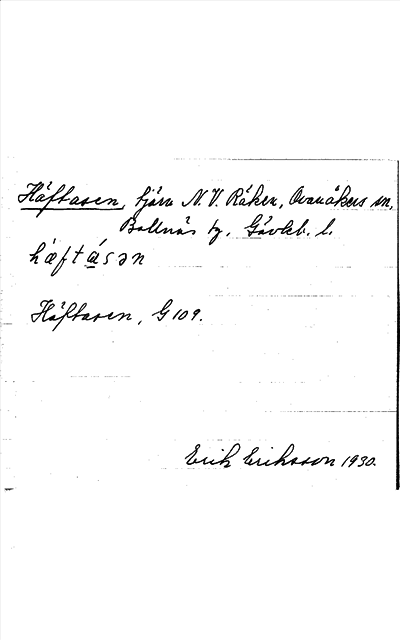 Häftasen, tjärn N.V. Råken, Ovanåkers sn,
Bollnäs tg, Gävleb. l.
hæftásən
Häftasen, G 109.
Erik Eriksson 1930.